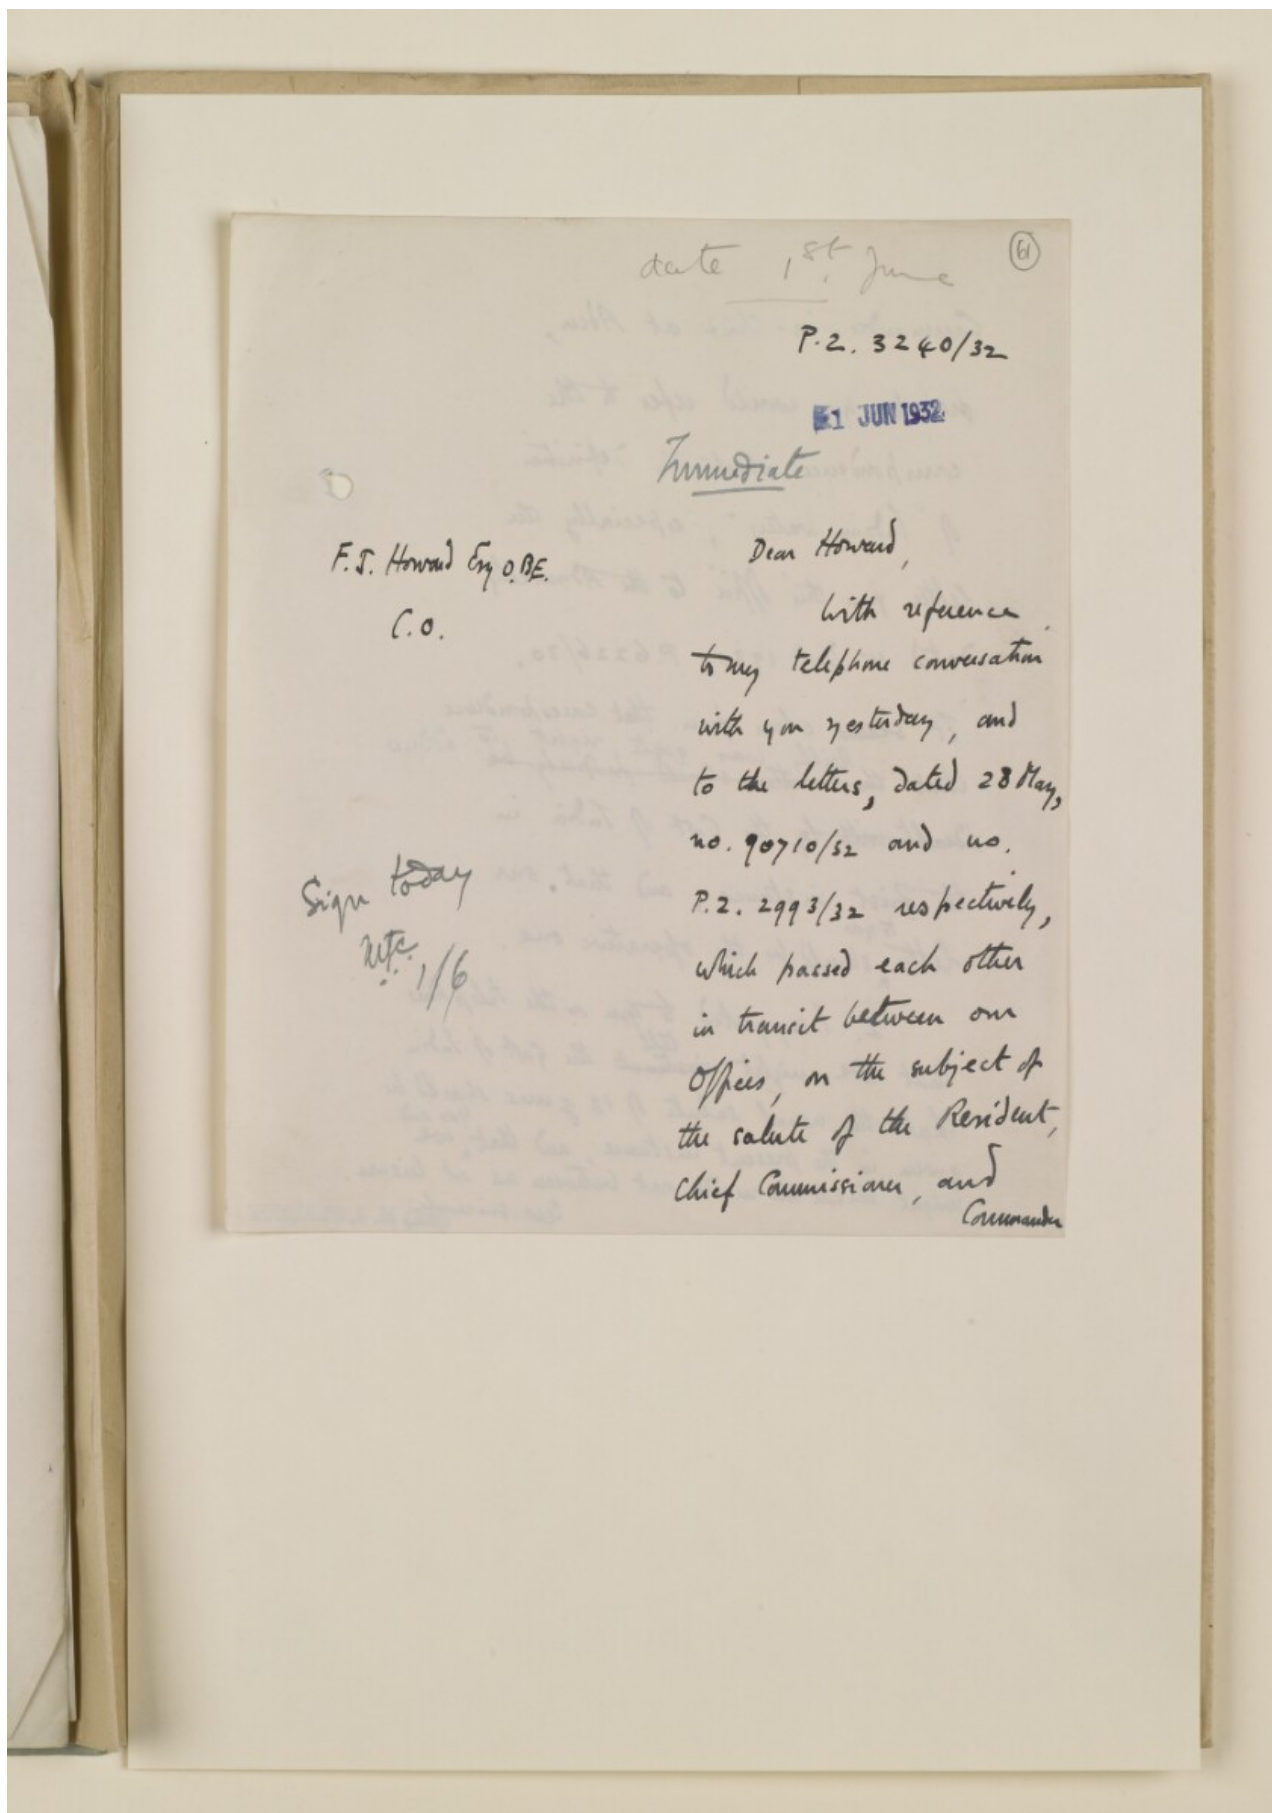 61
date 1st June
P.Z. 3240/32
1 JUN 1932
Immediate
F.J. Howard Esq O.B.E.
C.O.
Dear Howard,
With reference
to my telephone conversation
with you yesterday, and
to the letters, dated 28 May,
no. 90710/32 and no.
P.Z. 2993/32 respectively,
which passed each other
in transit between our
Offices, on the subject of
the salute of the Resident,
Chief Commissioner, and
Commander
Sign today
1/6